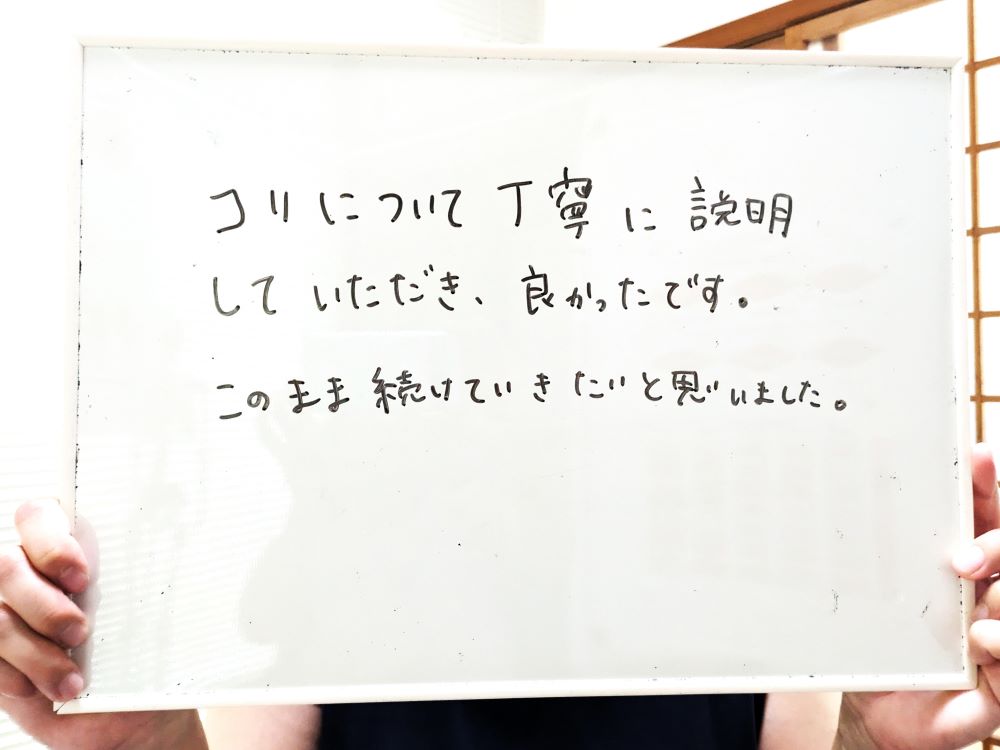 コリについて丁寧に説明
していただき、良かったです。
このまま続けていきたいと思いました。